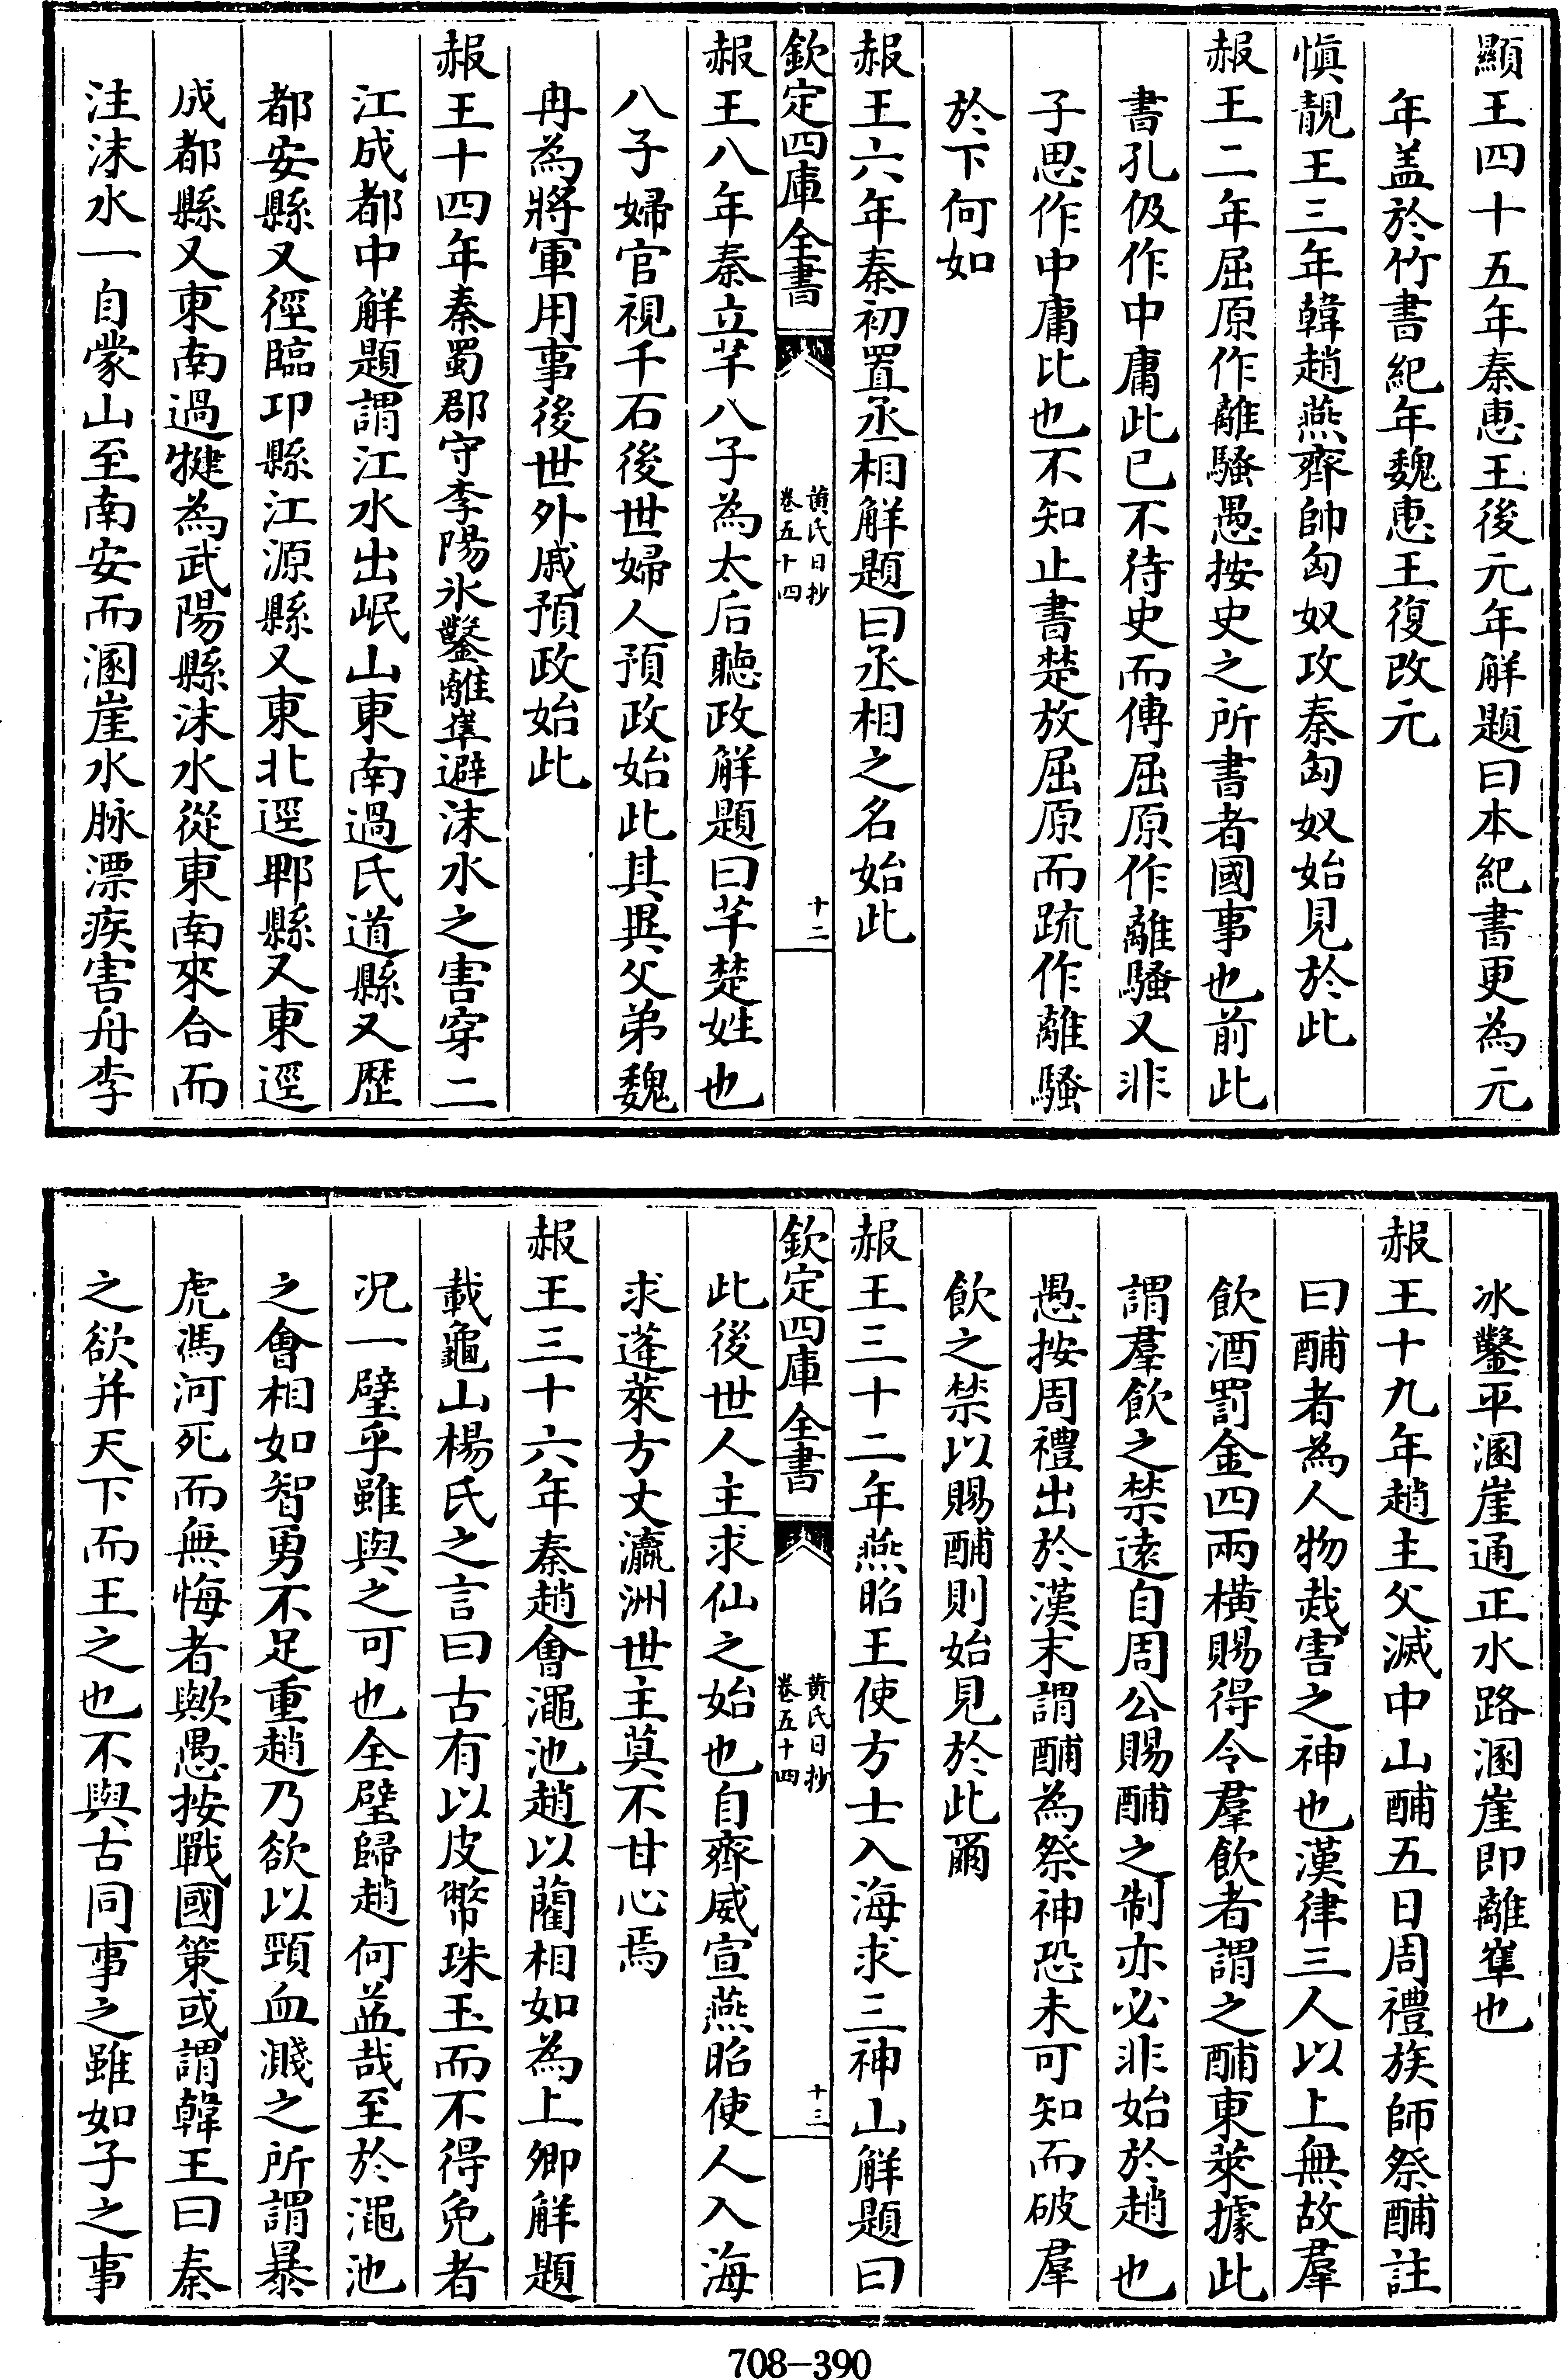 顯王四十五年秦惠王後元年解題曰本紀書更為元
年盖於竹書紀年魏惠王復改元
慎靚王三年韓趙燕齊帥匈奴攻秦匈奴始見於此
赧王二年屈原作離騷愚按史之所書者國事也前此
書孔伋作中庸此已不待史而傳屈原作離騷又非
子思作中庸比也不知止書楚放屈原而疏作離騷
於下何如
赧王六年秦初置丞相解題曰丞相之名始此
欽定四庫全書
黄氏日抄
卷五十四
十二
赧王八年秦立芊八子為太后聽政解題曰芊楚姓也
八子婦官視千石後世婦人預政始此其異父弟魏
冉為將軍用事後世外戚預政始此
赧王十四年秦蜀郡守李陽氷鑿離𡸗避沫水之害穿二
江成都中解題謂江水出岷山東南過氐道縣又歴
都安縣又徑臨邛縣江源縣又東北逕郫縣又東逕
成都縣又東南過犍為武陽縣沫水從東南來合而
注沫水一自䝉山至南安而溷崖水脉漂疾害舟李
冰鑿平溷崖通正水路溷崖即離𡸗也
赧王十九年趙主父滅中山酺五日周禮族師祭酺註
曰酺者為人物烖害之神也漢律三人以上無故羣
飲酒罰金四兩横賜得令羣飲者謂之酺東萊據此
謂羣飲之禁逺自周公賜酺之制亦必非始於趙也
愚按周禮出於漢末謂酺為祭神恐未可知而破羣
飲之禁以賜酺則始見於此爾
赧王三十二年燕昭王使方士入海求三神山解題曰
欽定四庫全書
黄氏日抄
卷五十四
十三
此後世人主求仙之始也自齊威宣燕昭使人入海
求蓬萊方丈瀛洲世主莫不甘心焉
赧王三十六年秦趙會澠池趙以藺相如為上卿解題
載龜山楊氏之言曰古有以皮幣珠玉而不得免者
况一璧乎雖與之可也全璧歸趙何益哉至於澠池
之會相如智勇不足重趙乃欲以頸血濺之所謂暴
虎馮河死而無悔者歟愚按戰國策或謂韓王曰秦
之欲并天下而王之也不與古同事之雖如子之事
708-390